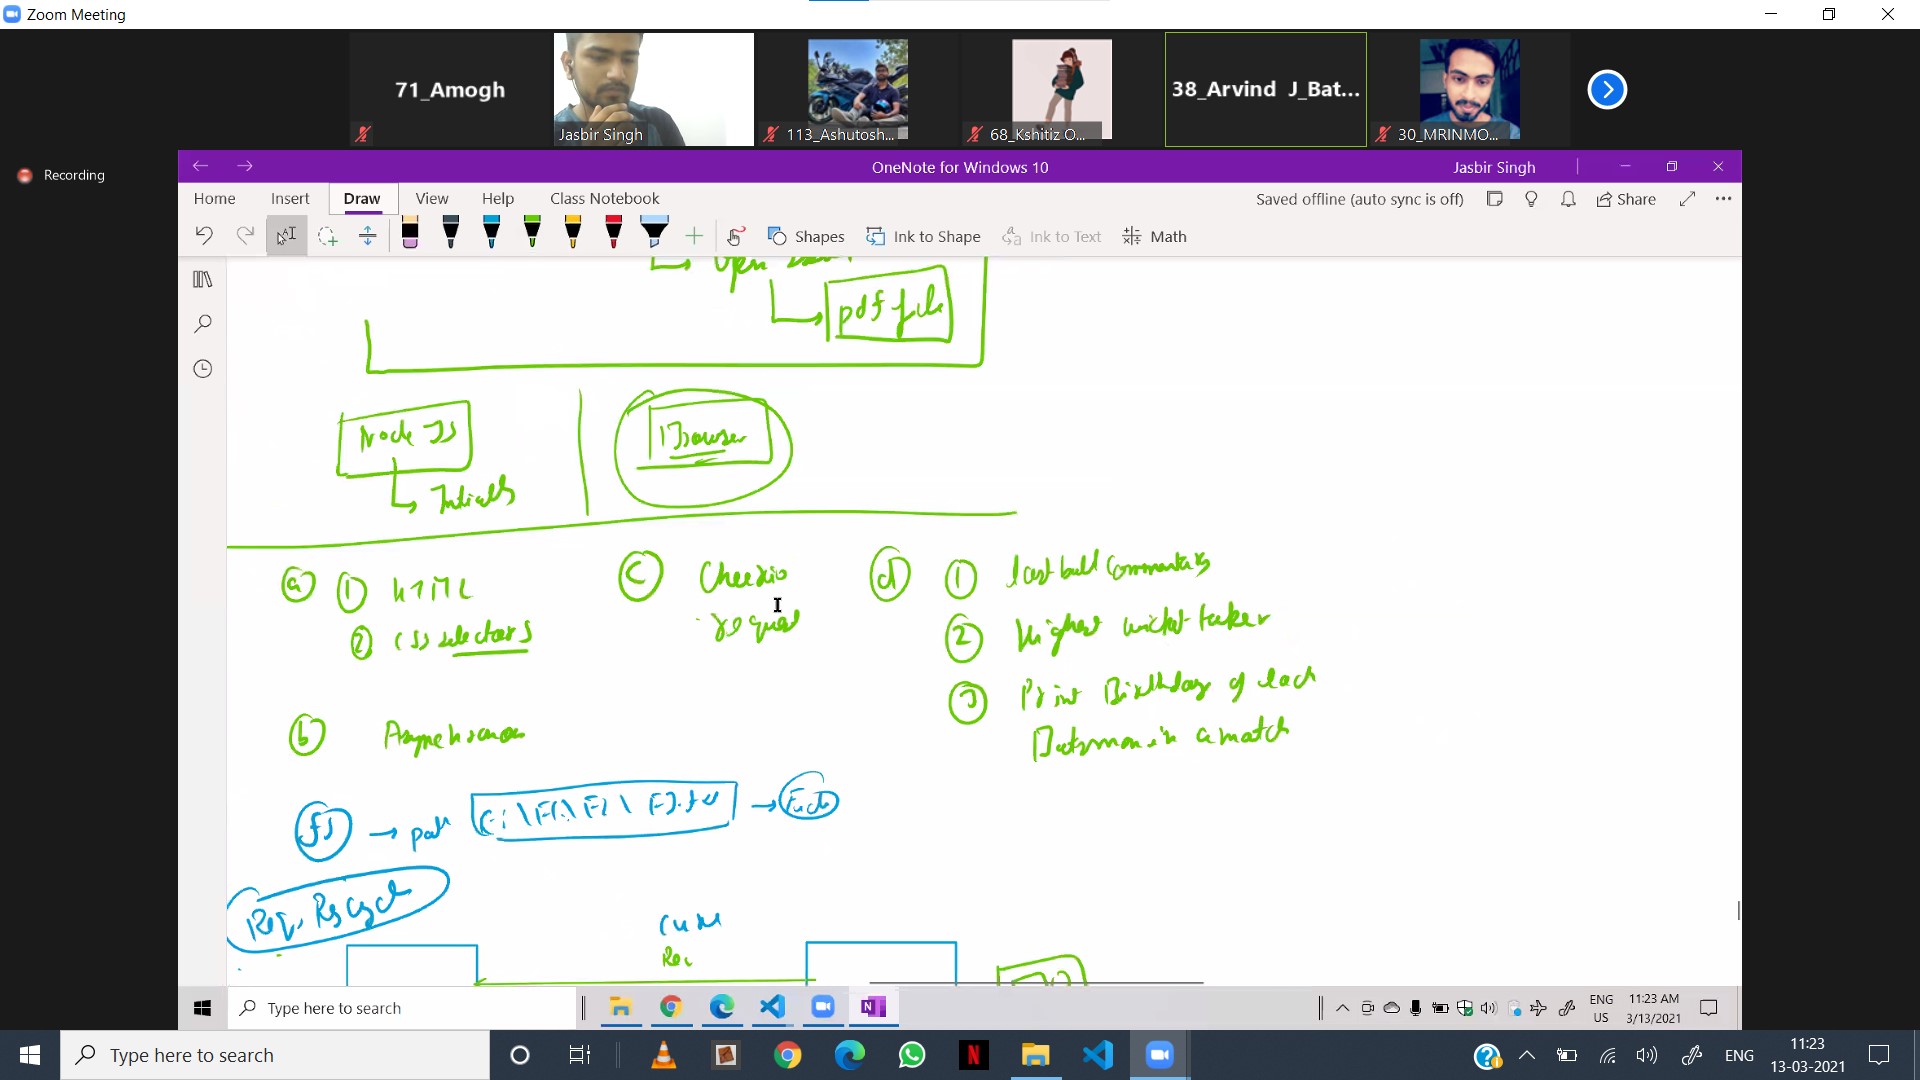 Zoom Meeting
71_Amogh
Jasbir Singh
113_Ashutosh...
68_Kshitiz O...
38_Arvind J_Bat...
30_MRINMO...
Recording
OneNote for Windows 10
Jasbir Singh
Home Insert Draw View Help Class Notebook
Saved offline (auto sync is off)
Share
Shapes
Ink to Shape
Ink to Text
Math
open
pdf file
Node JS
Browser
a 1 HTML
2 CSS selectors
c Cheerio
request
d 1 last ball commentary
2 Highest wicket taker
3 Print Birthday of each
Batsman in a match
b
fs → path
Rec
Type here to search
ENG
US
11:23 AM
3/13/2021
Type here to search
ENG
11:23
13-03-2021